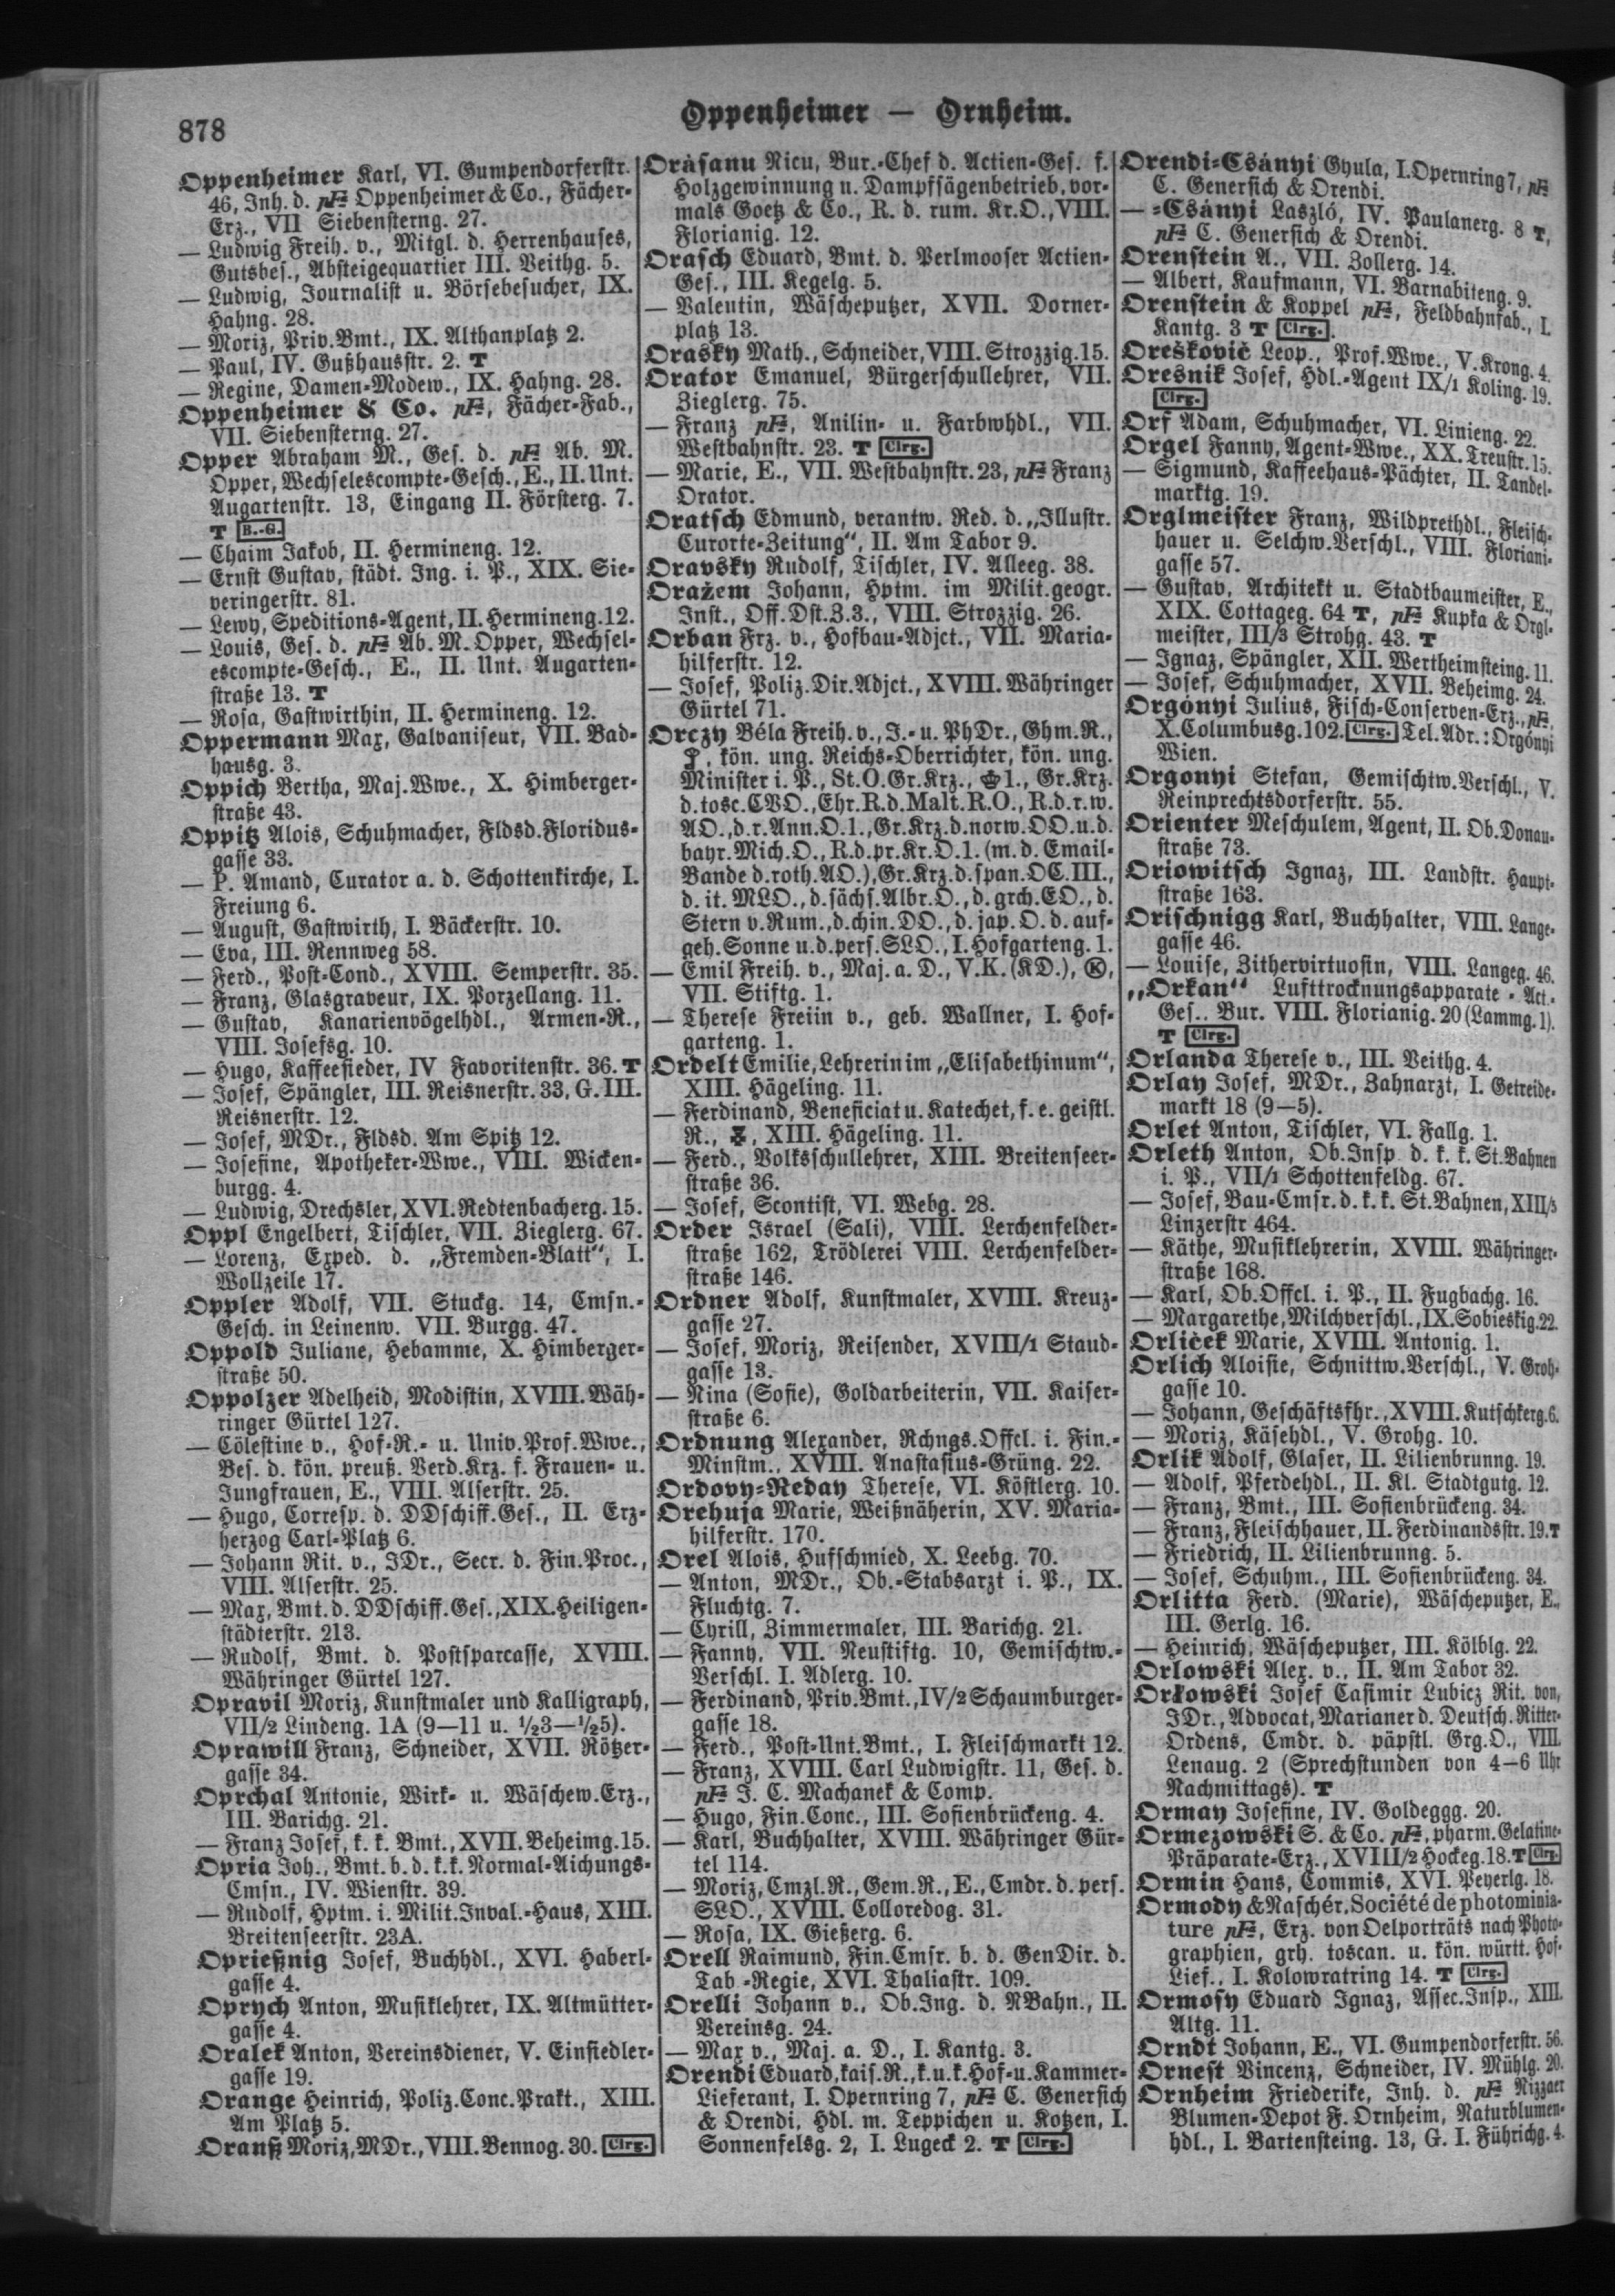 878
Oppenheimer — Ornheim.
Oppenheimer Karl, VI. Gumpendorferstr.
46, Inh. d. pF Oppenheimer & Co., Fächer-
Erz., VII Siebensterng. 27.
— Ludwig Freih. v., Mitgl. d. Herrenhauses,
Gutsbes., Absteigequartier III. Veithg. 5.
— Ludwig, Journalist u. Börsebesucher, IX.
Hahng. 28.
— Moriz, Priv.Bmt., IX. Althanplatz 2.
— Paul, IV. Gußhausstr. 2. T
— Regine, Damen-Modew., IX. Hahng. 28.
Oppenheimer & Co. pF, Fächer-Fab.,
VII. Siebensterng. 27.
Opper Abraham M., Ges. d. pF Ab. M.
Opper, Wechselescompte-Gesch., E., II. Unt.
Augartenstr. 13, Eingang II. Försterg. 7.
T B.-G.
— Chaim Jakob, II. Hermineng. 12.
— Ernst Gustav, städt. Ing. i. P., XIX. Sie-
veringerstr. 81.
— Lewy, Speditions-Agent, II. Hermineng. 12.
— Louis, Ges. d. pF Ab. M. Opper, Wechsel-
escompte-Gesch., E., II. Unt. Augarten-
straße 13. T
— Rosa, Gastwirthin, II. Hermineng. 12.
Oppermann Max, Galvaniseur, VII. Bad-
hausg. 3.
Oppich Bertha, Maj.Wwe., X. Himberger-
straße 43.
Oppitz Alois, Schuhmacher, Fldsd.Floridus-
gasse 33.
— P. Amand, Curator a. d. Schottenkirche, I.
Freiung 6.
— August, Gastwirth, I. Bäckerstr. 10.
— Eva, III. Rennweg 58.
— Ferd., Post-Cond., XVIII. Semperstr. 35.
— Franz, Glasgraveur, IX. Porzellang. 11.
— Gustav, Kanarienvögelhdl., Armen-R.,
VIII. Josefsg. 10.
— Hugo, Kaffeesieder, IV Favoritenstr. 36. T
— Josef, Spängler, III. Reisnerstr. 33, G. III.
Reisnerstr. 12.
— Josef, MDr., Fldsd. Am Spitz 12.
— Josefine, Apotheker-Wwe., VIII. Wicken-
burgg. 4.
— Ludwig, Drechsler, XVI. Redtenbacherg. 15.
Oppl Engelbert, Tischler, VII. Zieglerg. 67.
— Lorenz, Exped. d. „Fremden-Blatt“, I.
Wollzeile 17.
Oppler Adolf, VII. Stuckg. 14, Cmsn.-
Gesch. in Leinenw. VII. Burgg. 47.
Oppold Juliane, Hebamme, X. Himberger-
straße 50.
Oppolzer Adelheid, Modistin, XVIII. Wäh-
ringer Gürtel 127.
— Cölestine v., Hof-R.- u. Univ.Prof.Wwe.,
Bes. d. kön. preuß. Verd.Krz. f. Frauen- u.
Jungfrauen, E., VIII. Alserstr. 25.
— Hugo, Corresp. d. DDschiff.Ges., II. Erz-
herzog Carl-Platz 6.
— Johann Rit. v., JDr., Secr. d. Fin.Proc.,
VIII. Alserstr. 25.
— Max, Bmt. d. DDschiff.Ges., XIX. Heiligen-
städterstr. 213.
— Rudolf, Bmt. d. Postsparcasse, XVIII.
Währinger Gürtel 127.
Opravil Moriz, Kunstmaler und Kalligraph,
VII/2 Lindeng. 1A (9—11 u. ½3—½5).
Oprawill Franz, Schneider, XVII. Rötzer-
gasse 34.
Oprchal Antonie, Wirk- u. Wäschew.Erz.,
III. Barichg. 21.
— Franz Josef, k. k. Bmt., XVII. Beheimg. 15.
Opria Joh., Bmt. b. d. k.k. Normal-Aichungs-
Cmsn., IV. Wienstr. 39.
— Rudolf, Hptm. i. Milit.Inval.-Haus, XIII.
Breitenseerstr. 23A.
Oprießnig Josef, Buchhdl., XVI. Haberl-
gasse 4.
Oprych Anton, Musiklehrer, IX. Altmütter-
gasse 4.
Oralek Anton, Vereinsdiener, V. Einsiedler-
gasse 19.
Orange Heinrich, Poliz.Conc.Prakt., XIII.
Am Platz 5.
Orauß Moriz, MDr., VIII. Bennog. 30. Clrg.
Orăsanu Nicu, Bur.-Chef d. Actien-Ges. f.
Holzgewinnung u. Dampfsägenbetrieb, vor-
mals Goetz & Co., R. d. rum. Kr.O., VIII.
Florianig. 12.
Orasch Eduard, Bmt. d. Perlmooser Actien-
Ges., III. Kegelg. 5.
— Valentin, Wäscheputzer, XVII. Dorner-
platz 13.
Orasky Math., Schneider, VIII. Strozzig. 15.
Orator Emanuel, Bürgerschullehrer, VII.
Zieglerg. 75.
— Franz pF, Anilin- u. Farbwhdl., VII.
Westbahnstr. 23. T Clrg.
— Marie, E., VII. Westbahnstr. 23, pF Franz
Orator.
Oratsch Edmund, verantw. Red. d. „Illustr.
Curorte-Zeitung“, II. Am Tabor 9.
Oravsky Rudolf, Tischler, IV. Alleeg. 38.
Oražem Johann, Hptm. im Milit.geogr.
Inst., Off.Dst.Z.3., VIII. Strozzig. 26.
Orban Frz. v., Hofbau-Adjct., VII. Maria-
hilferstr. 12.
— Josef, Poliz.Dir.Adjct., XVIII. Währinger
Gürtel 71.
Orczy Béla Freih. v., J.- u. PhDr., Ghm.R.,
, kön. ung. Reichs-Oberrichter, kön. ung.
Minister i. P., St.O.Gr.Krz., 1., Gr.Krz.
d. tosc. CVO., Ehr.R.d.Malt.R.O., R.d.r.w.
AO., d.r.Ann.O.1., Gr.Krz.d.norw.OO.u.d.
bayr.Mich.O., R.d.pr.Kr.O.1. (m. d. Email-
Bande d.roth.AO.), Gr.Krz.d.span.OC.III.,
d. it. MLO., d.sächs.Albr.O., d.grch.EO., d.
Stern v.Rum., d.chin.DO., d. jap. O. d. auf-
geh. Sonne u.d.pers.SLO., I. Hofgarteng. 1.
— Emil Freih. v., Maj. a. D., V.K. (KD.), Ⓚ,
VII. Stiftg. 1.
— Therese Freiin v., geb. Wallner, I. Hof-
garteng. 1.
Ordelt Emilie, Lehrerin im „Elisabethinum“,
XIII. Hägeling. 11.
— Ferdinand, Beneficiat u. Katechet, f. e. geistl.
R., , XIII. Hägeling. 11.
— Ferd., Volksschullehrer, XIII. Breitenseer-
straße 36.
— Josef, Scontist, VI. Webg. 28.
Order Israel (Sali), VIII. Lerchenfelder-
straße 162, Trödlerei VIII. Lerchenfelder-
straße 146.
Ordner Adolf, Kunstmaler, XVIII. Kreuz-
gasse 27.
— Josef, Moriz, Reisender, XVIII/1 Staud-
gasse 13.
— Nina (Sofie), Goldarbeiterin, VII. Kaiser-
straße 6.
Ordnung Alexander, Rchngs.Offcl. i. Fin.-
Minstm., XVIII. Anastasius-Grüng. 22.
Ordovy-Reday Therese, VI. Köstlerg. 10.
Orehuja Marie, Weißnäherin, XV. Maria-
hilferstr. 170.
Orel Alois, Hufschmied, X. Leebg. 70.
— Anton, MDr., Ob.-Stabsarzt i. P., IX.
Fluchtg. 7.
— Cyrill, Zimmermaler, III. Barichg. 21.
— Fanny, VII. Neustiftg. 10, Gemischtw.-
Verschl. I. Adlerg. 10.
— Ferdinand, Priv.Bmt., IV/2 Schaumburger-
gasse 18.
— Ferd., Post-Unt.Bmt., I. Fleischmarkt 12.
— Franz, XVIII. Carl Ludwigstr. 11, Ges. d.
pF J. C. Machanek & Comp.
— Hugo, Fin.Conc., III. Sofienbrückeng. 4.
— Karl, Buchhalter, XVIII. Währinger Gür-
tel 114.
— Moriz, Cmzl.R., Gem.R., E., Cmdr. d. pers.
SLO., XVIII. Colloredog. 31.
— Rosa, IX. Gießerg. 6.
Orell Raimund, Fin.Cmsr. b. d. GenDir. d.
Tab.-Regie, XVI. Thaliastr. 109.
Orelli Johann v., Ob.Ing. d. NBahn., II.
Vereinsg. 24.
— Max v., Maj. a. D., I. Kantg. 3.
Orendi Eduard, kais.R., k.u.k.Hof-u.Kammer-
Lieferant, I. Opernring 7, pF C. Genersich
& Orendi, Hdl. m. Teppichen u. Kotzen, I.
Sonnenfelsg. 2, I. Lugeck 2. T Clrg.
Orendi-Csányi Gyula, I. Opernring 7, pF
C. Genersich & Orendi.
— -Csányi Laszló, IV. Paulanerg. 8 T,
pF C. Genersich & Orendi.
Orenstein A., VII. Zollerg. 14.
— Albert, Kaufmann, VI. Barnabiteng. 9.
Orenstein & Koppel pF, Feldbahnfab., I.
Kantg. 3 T Clrg.
Orešković Leop., Prof.Wwe., V. Krong. 4.
Oresnik Josef, Hdl.-Agent IX/1 Koling. 19.
Clrg.
Orf Adam, Schuhmacher, VI. Linieng. 22.
Orgel Fanny, Agent-Wwe., XX. Treustr. 15.
— Sigmund, Kaffeehaus-Pächter, II. Tandel-
marktg. 19.
Orglmeister Franz, Wildprethdl., Fleisch-
hauer u. Selchw.Verschl., VIII. Floriani-
gasse 57.
— Gustav, Architekt u. Stadtbaumeister, E.,
XIX. Cottageg. 64 T, pF Kupka & Orgl-
meister, III/3 Strohg. 43. T
— Ignaz, Spängler, XII. Wertheimsteing. 11.
— Josef, Schuhmacher, XVII. Beheimg. 24.
Orgónyi Julius, Fisch-Conserven-Erz., pF,
X. Columbusg. 102. Clrg. Tel.Adr.: Orgónyi
Wien.
Orgonyi Stefan, Gemischtw.Verschl., V.
Reinprechtsdorferstr. 55.
Orienter Meschulem, Agent, II. Ob.Donau-
straße 73.
Oriowitsch Ignaz, III. Landstr. Haupt-
straße 163.
Orischnigg Karl, Buchhalter, VIII. Lange-
gasse 46.
— Louise, Zithervirtuosin, VIII. Langeg. 46.
„Orkan“ Lufttrocknungsapparate - Act.-
Ges.. Bur. VIII. Florianig. 20 (Lammg. 1).
T Clrg.
Orlanda Therese v., III. Veithg. 4.
Orlay Josef, MDr., Zahnarzt, I. Getreide-
markt 18 (9—5).
Orlet Anton, Tischler, VI. Fallg. 1.
Orleth Anton, Ob.Insp. d. k. k. St.Bahnen
i. P., VII/1 Schottenfeldg. 67.
— Josef, Bau-Cmsr. d. k. k. St.Bahnen, XIII/5
Linzerstr 464.
— Käthe, Musiklehrerin, XVIII. Währinger-
straße 168.
— Karl, Ob.Offcl. i. P., II. Fugbachg. 16.
— Margarethe, Milchverschl., IX. Sobieskig. 22.
Orliček Marie, XVIII. Antonig. 1.
Orlich Aloisie, Schnittw.Verschl., V. Groh-
gasse 10.
— Johann, Geschäftsfhr., XVIII. Kutschkerg. 6.
— Moriz, Käsehdl., V. Grohg. 10.
Orlik Adolf, Glaser, II. Lilienbrunng. 19.
— Adolf, Pferdehdl., II. Kl. Stadtgutg. 12.
— Franz, Bmt., III. Sofienbrückeng. 34.
— Franz, Fleischhauer, II. Ferdinandsstr. 19. T
— Friedrich, II. Lilienbrunng. 5.
— Josef, Schuhm., III. Sofienbrückeng. 34.
Orlitta Ferd. (Marie), Wäscheputzer, E.,
III. Gerlg. 16.
— Heinrich, Wäscheputzer, III. Kölblg. 22.
Orlowski Alex. v., II. Am Tabor 32.
Orłowski Josef Casimir Lubicz Rit. von,
JDr., Advocat, Marianer d. Deutsch. Ritter-
Ordens, Cmdr. d. päpstl. Grg.O., VIII.
Lenaug. 2 (Sprechstunden von 4—6 Uhr
Nachmittags). T
Ormay Josefine, IV. Goldeggg. 20.
Ormezowski S. & Co. pF, pharm. Gelatine-
Präparate-Erz., XVIII/2 Hockeg. 18. T Clrg.
Ormin Hans, Commis, XVI. Peyerlg. 18.
Ormody & Naschér, Société de photominia-
ture pF, Erz. von Oelporträts nach Photo-
graphien, grh. toscan. u. kön. württ. Hof-
Lief., I. Kolowratring 14. T Clrg.
Ormosy Eduard Ignaz, Assec.Insp., XIII.
Altg. 11.
Orndt Johann, E., VI. Gumpendorferstr. 56.
Ornest Vincenz, Schneider, IV. Mühlg. 20.
Ornheim Friederike, Inh. d. pF Nizzaer
Blumen-Depot F. Ornheim, Naturblumen-
hdl., I. Bartensteing. 13, G. I. Führichg. 4.